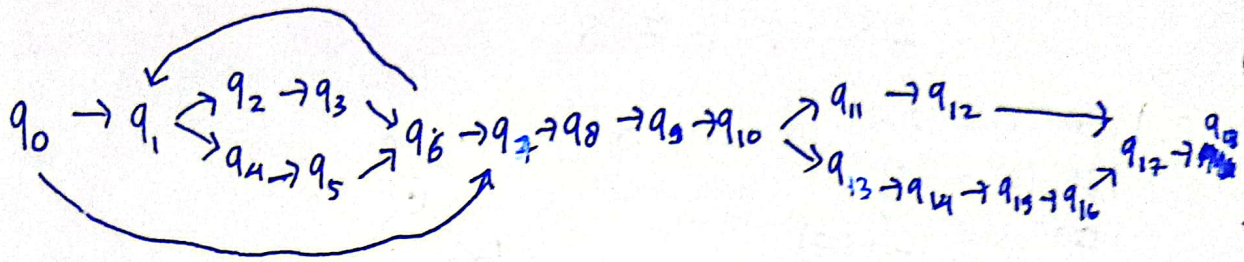 q0 → q1 → q2 → q3 → q6 → q7 → q8 → q9 → q10 → q11 → q12 → q17 →
q4 → q5
q13 → q14 → q15 → q16